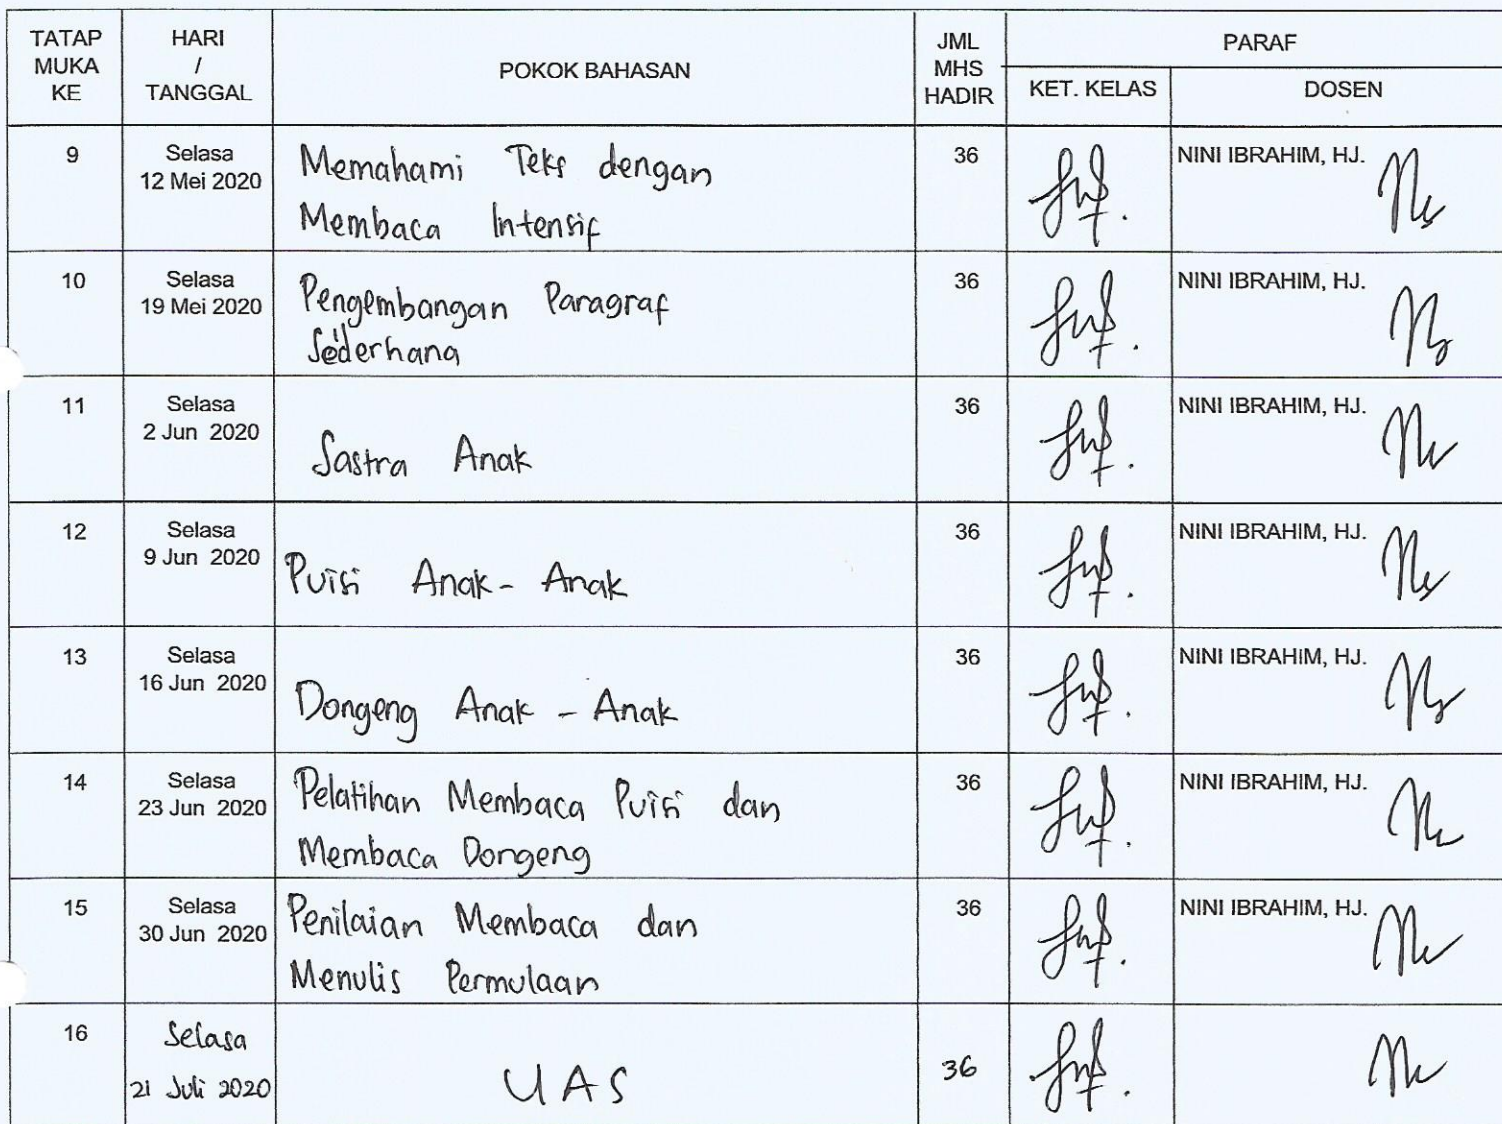 TATAP MUKA KE
HARI / TANGGAL
POKOK BAHASAN
JML MHS HADIR
PARAF
KET. KELAS
DOSEN
9
Selasa
12 Mei 2020
Memahami Teks dengan
Membaca Intensif
36
NINI IBRAHIM, HJ.
10
Selasa
19 Mei 2020
Pengembangan Paragraf
Sederhana
36
NINI IBRAHIM, HJ.
11
Selasa
2 Jun 2020
Sastra Anak
36
NINI IBRAHIM, HJ.
12
Selasa
9 Jun 2020
Puisi Anak - Anak
36
NINI IBRAHIM, HJ.
13
Selasa
16 Jun 2020
Dongeng Anak - Anak
36
NINI IBRAHIM, HJ.
14
Selasa
23 Jun 2020
Pelatihan Membaca Puisi dan
Membaca Dongeng
36
NINI IBRAHIM, HJ.
15
Selasa
30 Jun 2020
Penilaian Membaca dan
Menulis Permulaan
36
NINI IBRAHIM, HJ.
16
Selasa
21 Juli 2020
UAS
36